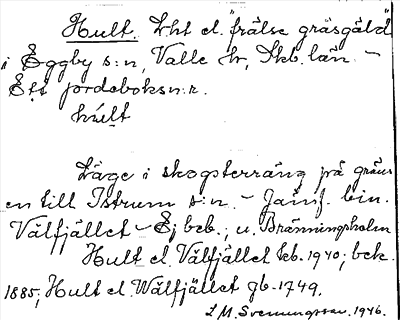 Hult. Lht el. "frälse gräsgäld"
i Eggby s:n, Valle hr, Skb. län. -
Ett jordeboksn:r.
hult
Läge i skogsterräng på gräns
en till Istrum s:n. - Jämf. bin.
Välfjället - Ej beb., u. Bränningsholm
Hult el. Välfjället kb. 1940; bek.
1885; Hult el. Wälfjället gb. 1749.
L M. Svenungsson, 1946.